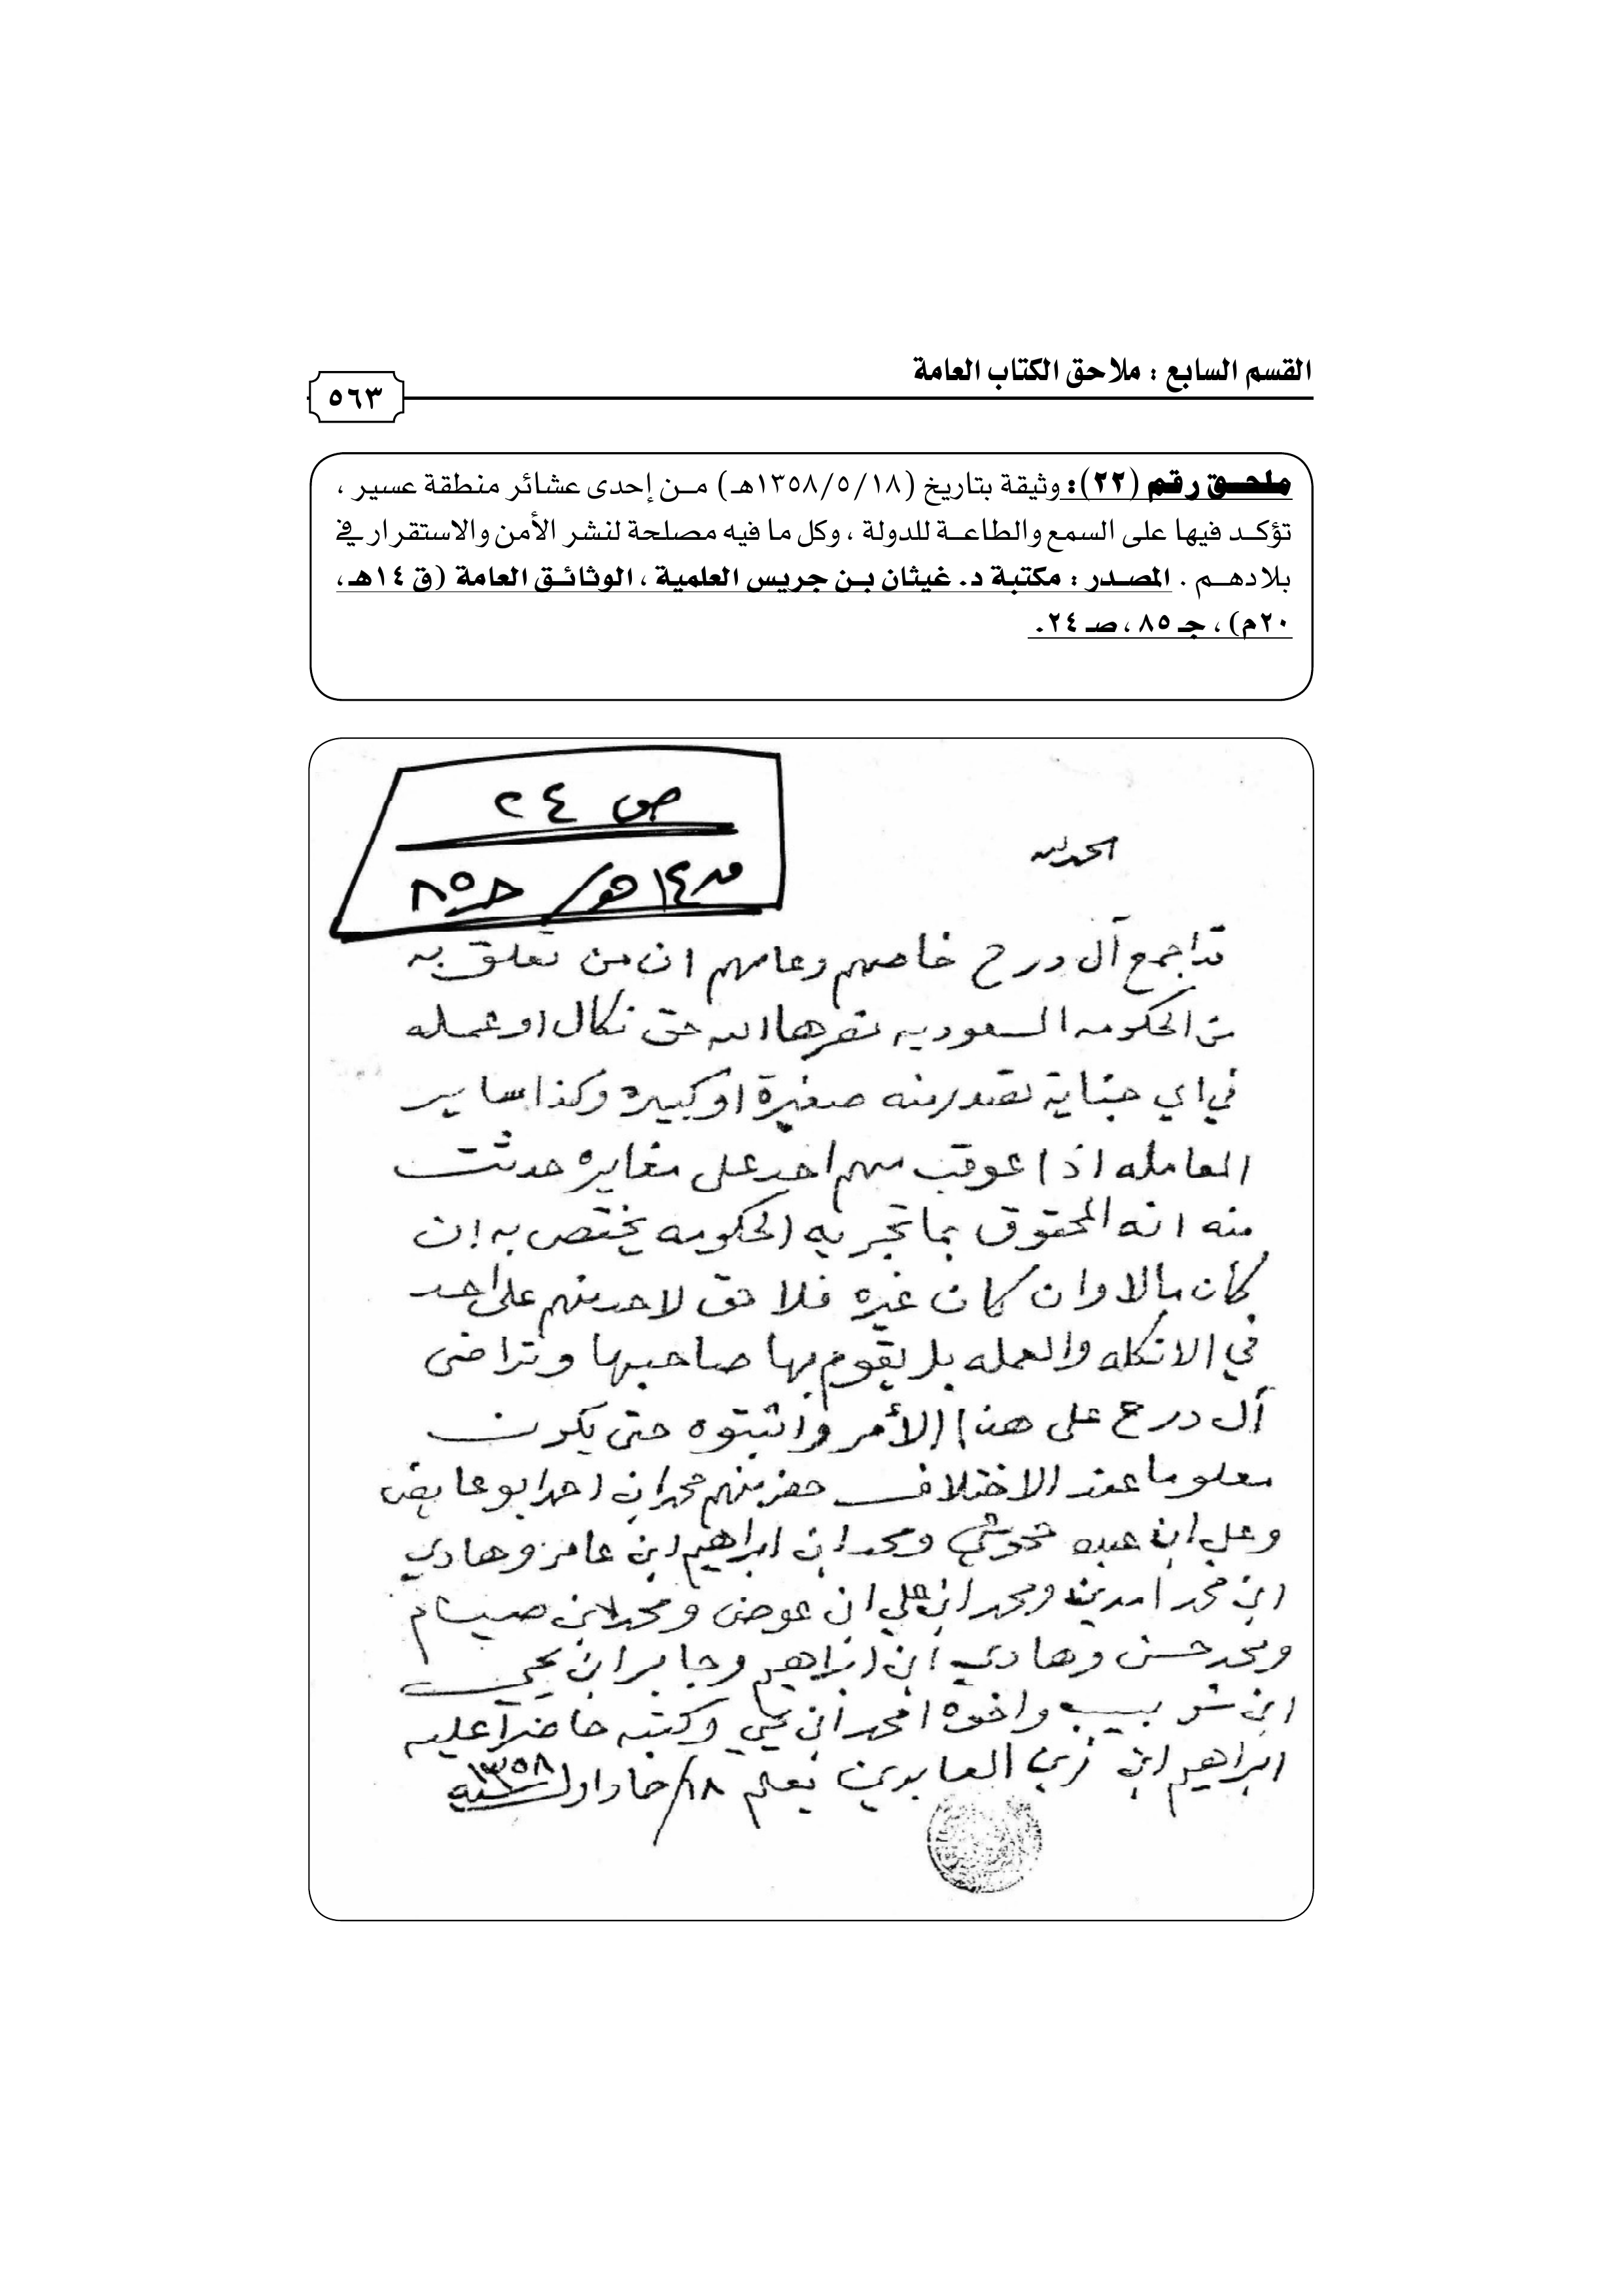 القسم السابع : ملاحق الكتاب العامة
٥٦٣
ملحق رقم (٢٢): وثيقة بتاريخ (١٣٥٨/٥/١٨هـ) من إحدى عشائر منطقة عسير ،
تؤكد فيها على السمع والطاعة للدولة ، وكل ما فيه مصلحة لنشر الأمن والاستقرار في
بلادهم . المصدر : مكتبة د. غيثان بن جريس العلمية ، الوثائق العامة (ق ١٤هـ،
٢٠م) ، جـ ٨٥ ، صـ ٢٤.
ص ٢٤
ق ١٤هـ / جـ ٨٥
الحمد لله
قد اجمع آل درح خاصهم وعامهم ان من تعلق به
من الحكومه السعوديه نصرها الله حق نكال او عمله
في اي جناية تصدر منه صغيرة او كبيره وكذا ساير
المعامله اذا عوقب منهم احد على مغايره حدثت
منه انه المحقوق بما تجريه الحكومه يختص به إن
كان مالا وان كان غيره فلا حق لاحد منهم على احد
في الانكله والعمله بل يقوم بها صاحبها وتراضى
آل درح على هذا الأمر واثبتوه حتى يكون
معلوما عند الاختلاف حضر منهم محمد ابن احمد ابو عايض
وعلي ابن عبده ومحمد ابن ابراهيم ابن عامر وهادي
ابن محمد ومحمد ابن علي ابن عوض ومحمد ابن صيام
ومحمد حسن وهادي ابن ابراهيم وجابر ابن يحيى
ابن شويب واخوه محمد ابن يحيى وكتبه حاضرا عليه
ابراهيم ابن زين العابدين نعلم ١٨/ جماد اول سنة ١٣٥٨